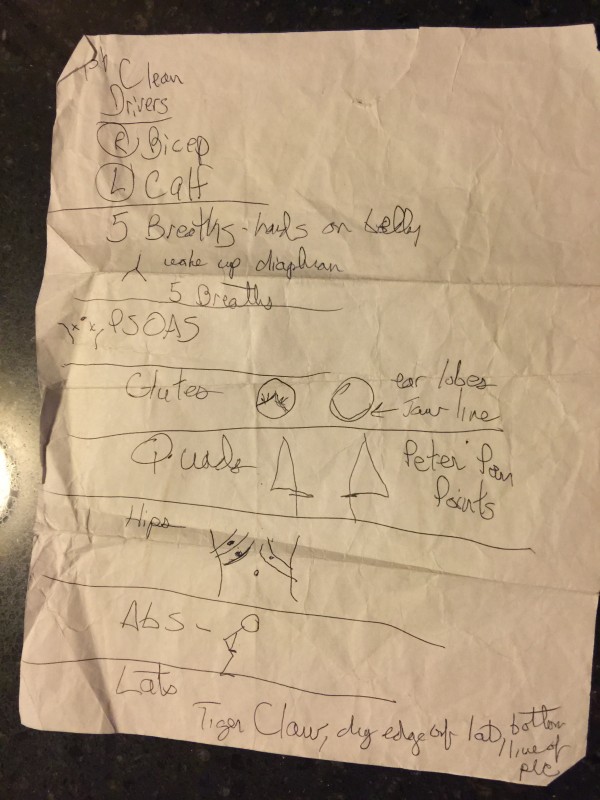 Clean
Drivers
R Bicep
L Calf
5 Breaths - hands on belly
wake up diaphram
5 Breaths
PSOAS
Glutes
ear lobes
Jaw line
Quads
Peter Pan
Points
Hips
Abs -
Lats
Tiger Claw, dig edge of lat, bottom
line of
pec